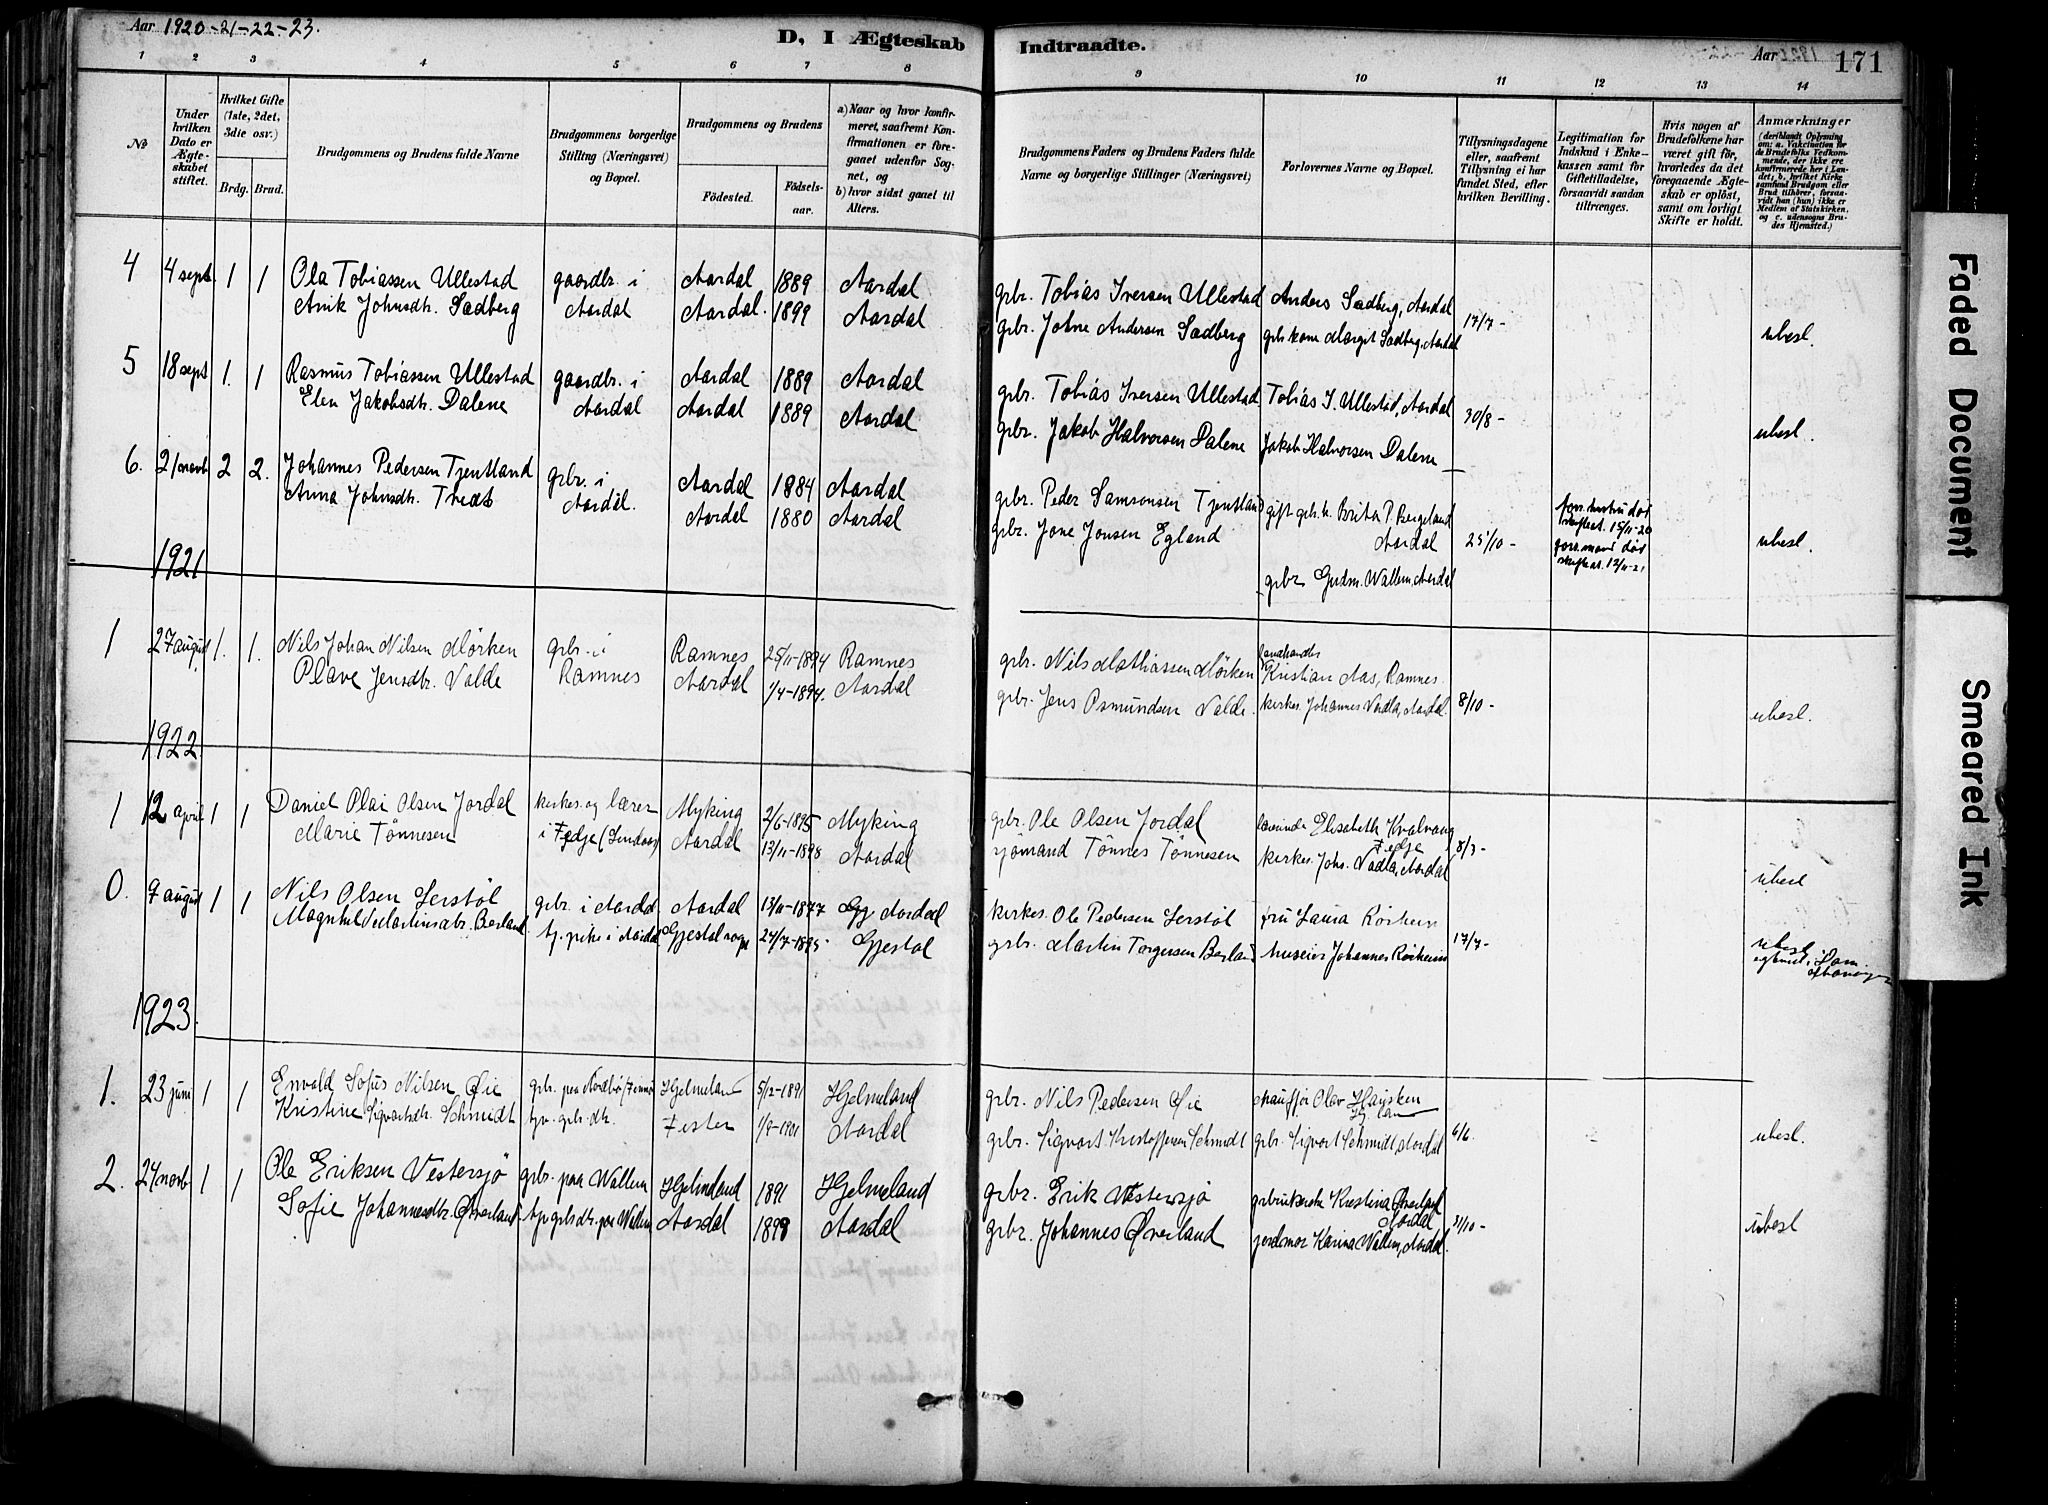 Aar 1920-21-22-23.
D, I Ægteskab Indtraadte.
Aar 171
1 2 3 4 5 6 7 8 9 10 11 12 13 14
No
Under hvilken Dato er Ægteskabet stiftet.
Hvilket Gifte (1ste, 2det, 3die osv.)
Brdg. Brud.
Brudgommens og Brudens fulde Navne
Brudgommens borgerlige Stilling (Næringsvei) og Bopæl.
Brudgommens og Brudens
Fødested. Fødselsaar.
a) Naar og hvor konfirmeret, saafremt Konfirmationen er foregaaet udenfor Sognet, og
b) hvor sidst gaaet til Alters.
Brudgommens Faders og Brudens Faders fulde Navne og borgerlige Stillinger (Næringsvei)
Forlovernes Navne og Bopæl.
Tillysningsdagene eller, saafremt Tillysning ei har fundet Sted, efter hvilken Bevilling.
Legitimation for Indskud i Enkekassen samt for Giftetilladelse, forsaavidt saadan tiltrænges.
Hvis nogen af Brudefolkene har været gift før, hvorledes da det foregaaende Ægteskab er opløst, samt om lovligt Skifte er holdt.
Anmærkninger (deriblandt Oplysning om: a. Vaccination for de Brudefolks Vedkommende, der ikke ere konfirmerede her i Landet; b. hvilket Kirkesamfund Brudgom eller Brud tilhører, forsavidt han (hun) ikke er Medlem af Statskirken. og c. udensogns Brudes Hjemsted.)
4 4 sept. 1 1 Ola Tobiassen Ullestad gaardbr. i Aardal 1889 Aardal grbr. Tobias Iversen Ullestad Anders Sædberg, Aardal
Anik Johnsdtr. Sædberg Aardal Aardal. 1899 Aardal grbr. Johne Andersen Sædberg grbr kone Margit Sædberg, Aardal 17/7- ubesl.
5 18 sept 1. 1 Rasmus Tobiassen Ullestad gaardbr. i Aardal 1889 Aardal grbr. Tobias Iversen Ullestad Tobias I. Ullestad, Aardal
Elen Jakobsdtr. Dalene Aardal Aardal 1889 Aardal grbr. Jakob Halvorsen Dalene Jakob Halvorsen Dalene 30/8- ubesl.
6. 21 novb 2 2. Johannes Pedersen Tjentland grbr. i Aardal 1884 Aardal grbr. Peder Samsonsen Tjentland gift grb. k. Brita P. Bergeland
Anna Johnsdtr. Aardal. Aardal 1880 Aardal grbr. Jone Jonsen Egland Aardal 25/10- skifteat. 15/11-20 ubesl.
1921 grbr Gudm. Wallem, Aardal
1 27 august 1. 1. Nils Johan Nilsen Mörken grbr. i Ramnes 25/11-1894 Ramnes grbr. Nils Mathiassen Mörken landhandler Kristian Aas, Ramnes
Olave Jensdtr. Valde Ramnes Aardal 1/4-1894. Aardal grbr. Jens Osmundsen Valde. kirkes. Johannes Vadla, Aardal 8/10- ubesl.
1922
1 12 april 1 1 Daniel Olai Olsen Jordal kirkes. og lærer Myking 2/6-1895 Myking grbr. Ole Olsen Jordal lærerinde Elisabeth Kvalvaag Fedje
Marie Tönnesen i Fedje (Lindaas) Aardal 13/11-1898 Aardal sjömand Tönnes Tönnesen kirkes. Johs. Vadla, Aardal 8/3- ubesl
0. 7 august 1 1 Nils Olsen Lerstöl grbr. i Aardal Aardal 13/11-1877 Aardal kirkes. Ole Pedersen Lerstöl fru Laura Rösheim
tj. pike i Aardal Gjestal sogn 24/7-1895 Gjestal grbr. Martin Torgersen Berland Johannes Rösheim 17/7- ubesl
1923.
1. 23 juni 1 1 Envald Sofus Nilsen Öie grbr. paa Hjelmeland 5/12-1891 Hjelmeland grbr. Nils Pedersen Öie chauffør Olav
Kristine Sigvartsdtr. Schmidt Fister 1/9-1901 Aardal grbr. Sigvart Kristoffersen Schmidt grbr. Sigvart Schmidt, Aardal 6/6. ubesl.
2. 24 novb 1 1 Ole Eriksen Vestersjö grbr. paa Wallem Hjelmeland 1891 Hjelmeland grbr. Erik Vestersjö Kristina Överland Aardal
Sofie Johannesdtr. Överland paa Wallem Aardal 1898 Aardal grbr. Johannes Överland jordmor Karina Wallem, Aardal. 31/10- ubesl
Faded Document
Smeared Ink